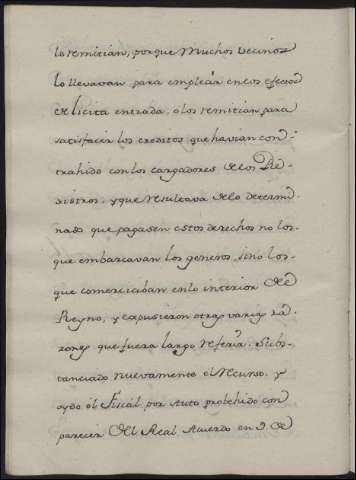 lo remitian, porque muchos vecinos
lo llevavan para emplear en los efectos
de licita entrada, ó los remitian para
satisfacer los creditos que havian con
trahido con los cargadores de los Re
xistros, y que resultava de lo determi
nado que pagasen estos derechos no los
que embarcavan los generos, sino los
que comerciaban en lo interior de
Reyno, y expusieron otras varias ra
zones que fuera largo referir. Subs
tanciado nuevamente el recurso, y
oydo el Fiscal por Auto probehido con
parecer del Real Acuerdo en 9 de